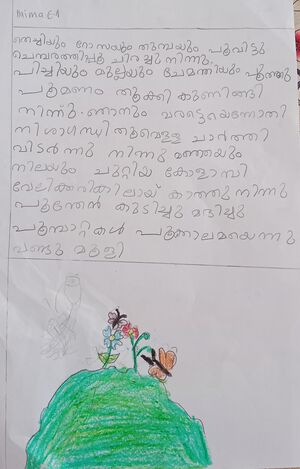 mima E1
തെച്ചിയും റോസയും തുമ്പയും പൂവിട്ടു
ചെമ്പരത്തിപ്പൂ ചിറച്ചു നിന്നു.
പിച്ചിയും മുല്ലയും ചേമന്തിയും പൂത്തു
പൂമണം തൂക്കി കുണുങ്ങി
നിന്നു. ഞാനും വരട്ടെയന്നോതി
നിശാഗന്ധി തൂവെള്ള ചാർത്തി
വിടർന്നു നിന്നു മഞ്ഞയും
നിലയും ചുറ്റിയ കോളാമ്പി
വേലിക്കരികിലായ് കാത്തു നിന്നു
പൂന്തേൻ കുടിച്ചു മദിച്ചു
പൂമ്പാറ്റകൾ പൂക്കാലമയെന്നു
വണ്ടു മൂളി